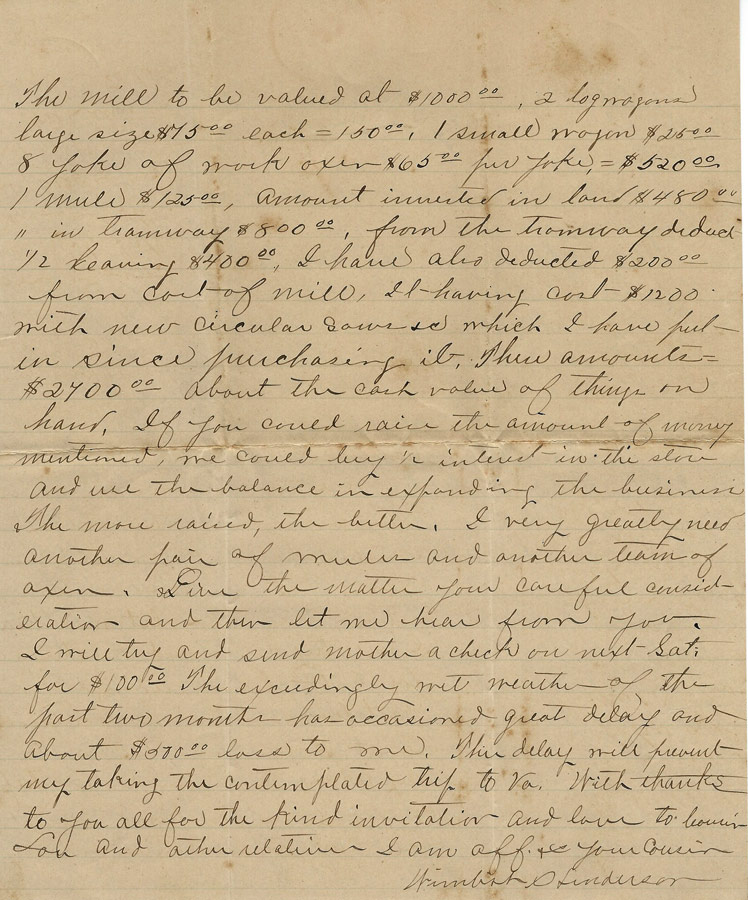 The mill to be valued at $1000.00, 2 log wagons
large size $75.00 each = 150.00, 1 small wagon $25.00
8 yoke of work oxen $65.00 per yoke, = $520.00
1 mule $125.00, amount invested in land $480.00
" in tramway $800.00, from the tramway deduct
1/2 leaving $400.00, I have also deducted $200.00
from cost of mill, It having cost $1200.
with new circular saws &c which I have put
in since purchasing it. These amounts =
$2700.00 about the cash value of things on
hand. If you could raise the amount of money
mentioned, we could buy 1/2 interest in the store
and use the balance in expanding the business
The more raised, the better. I very greatly need
another pair of mules and another team of
oxen. Give the matter your careful consid-
eration and then let me hear from you.
I will try and send mother a check on next Sat.
for $100.00 The exceedingly wet weather of the
past two months has occasioned great delay and
about $500.00 loss to me. This delay will prevent
my taking the contemplated trip to Va. With thanks
to you all for the kind invitation and love to
Lou and other relatives I am aff. &c your cousin
Henderson